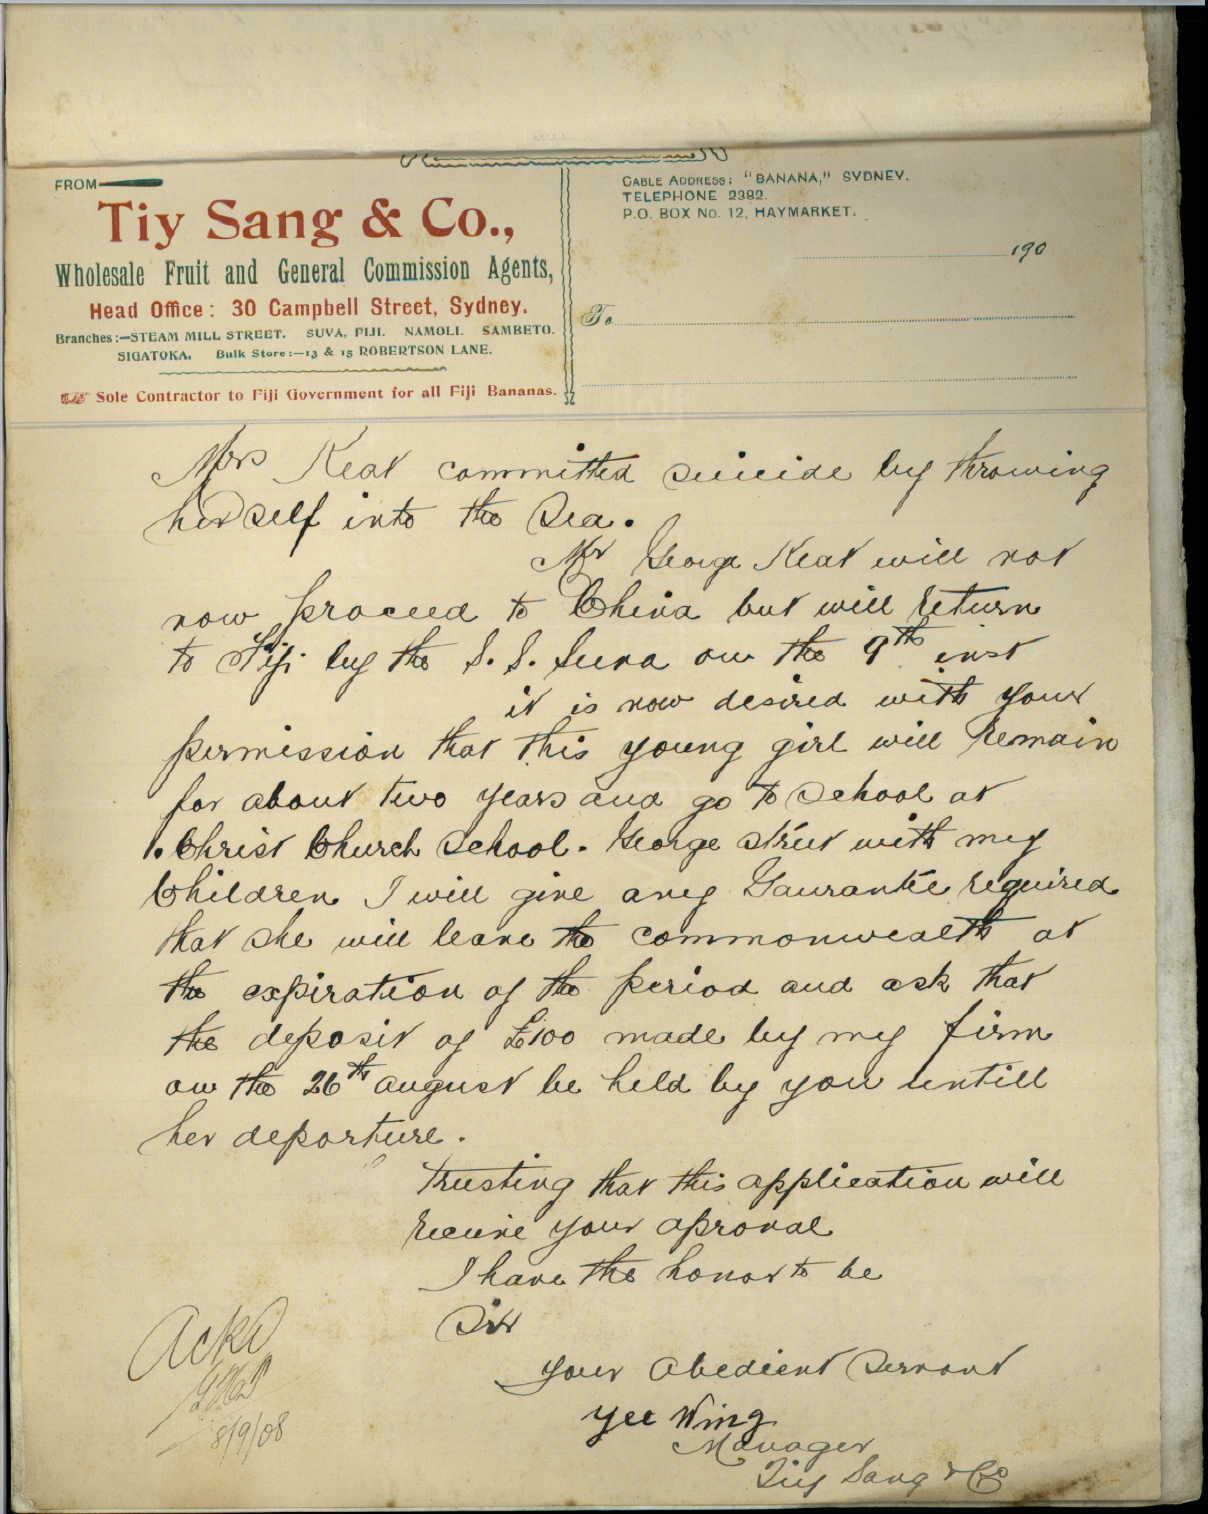 FROM
Tiy Sang & Co.,
Wholesale Fruit and General Commission Agents,
Head Office: 30 Campbell Street, Sydney.
Branches:—STEAM MILL STREET. SUVA, FIJI. NAMOLI. SAMBETO.
SIGATOKA. Bulk Store:—13 & 15 ROBERTSON LANE.
Sole Contractor to Fiji Government for all Fiji Bananas.
CABLE ADDRESS: "BANANA," SYDNEY.
TELEPHONE 2382.
P.O. BOX No. 12, HAYMARKET.
190
To
Mrs Keat committed suicide by throwing
herself into the Sea.
Mr George Keat will not
now proceed to China but will return
to Fiji by the S. S. Suva on the 9th inst
it is now desired with your
permission that this young girl will remain
for about two years and go to School at
Christ Church School. George Street with my
Children I will give any Gaurantee required
that she will leave the commonwealth at
the expiration of the period and ask that
the deposit of £100 made by my firm
on the 26th august be held by you untill
her deporture.
Trusting that this application will
receive your aproval
I have the honor to be
Sir
your Obedient Servant
Yee Wing
Manager
Tiy Sang & Co
Ackd
8/9/08